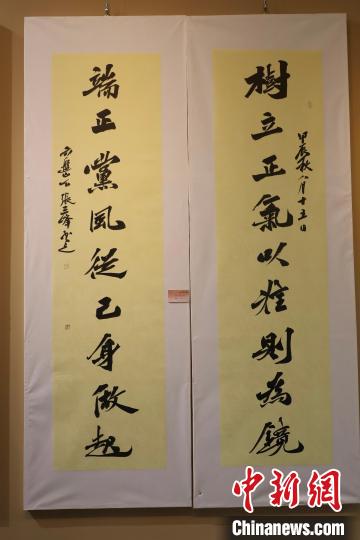 樹立正氣以准則為鏡
甲辰秋八月十五日
端正黨風從己身做起
中新网
Chinanews.com